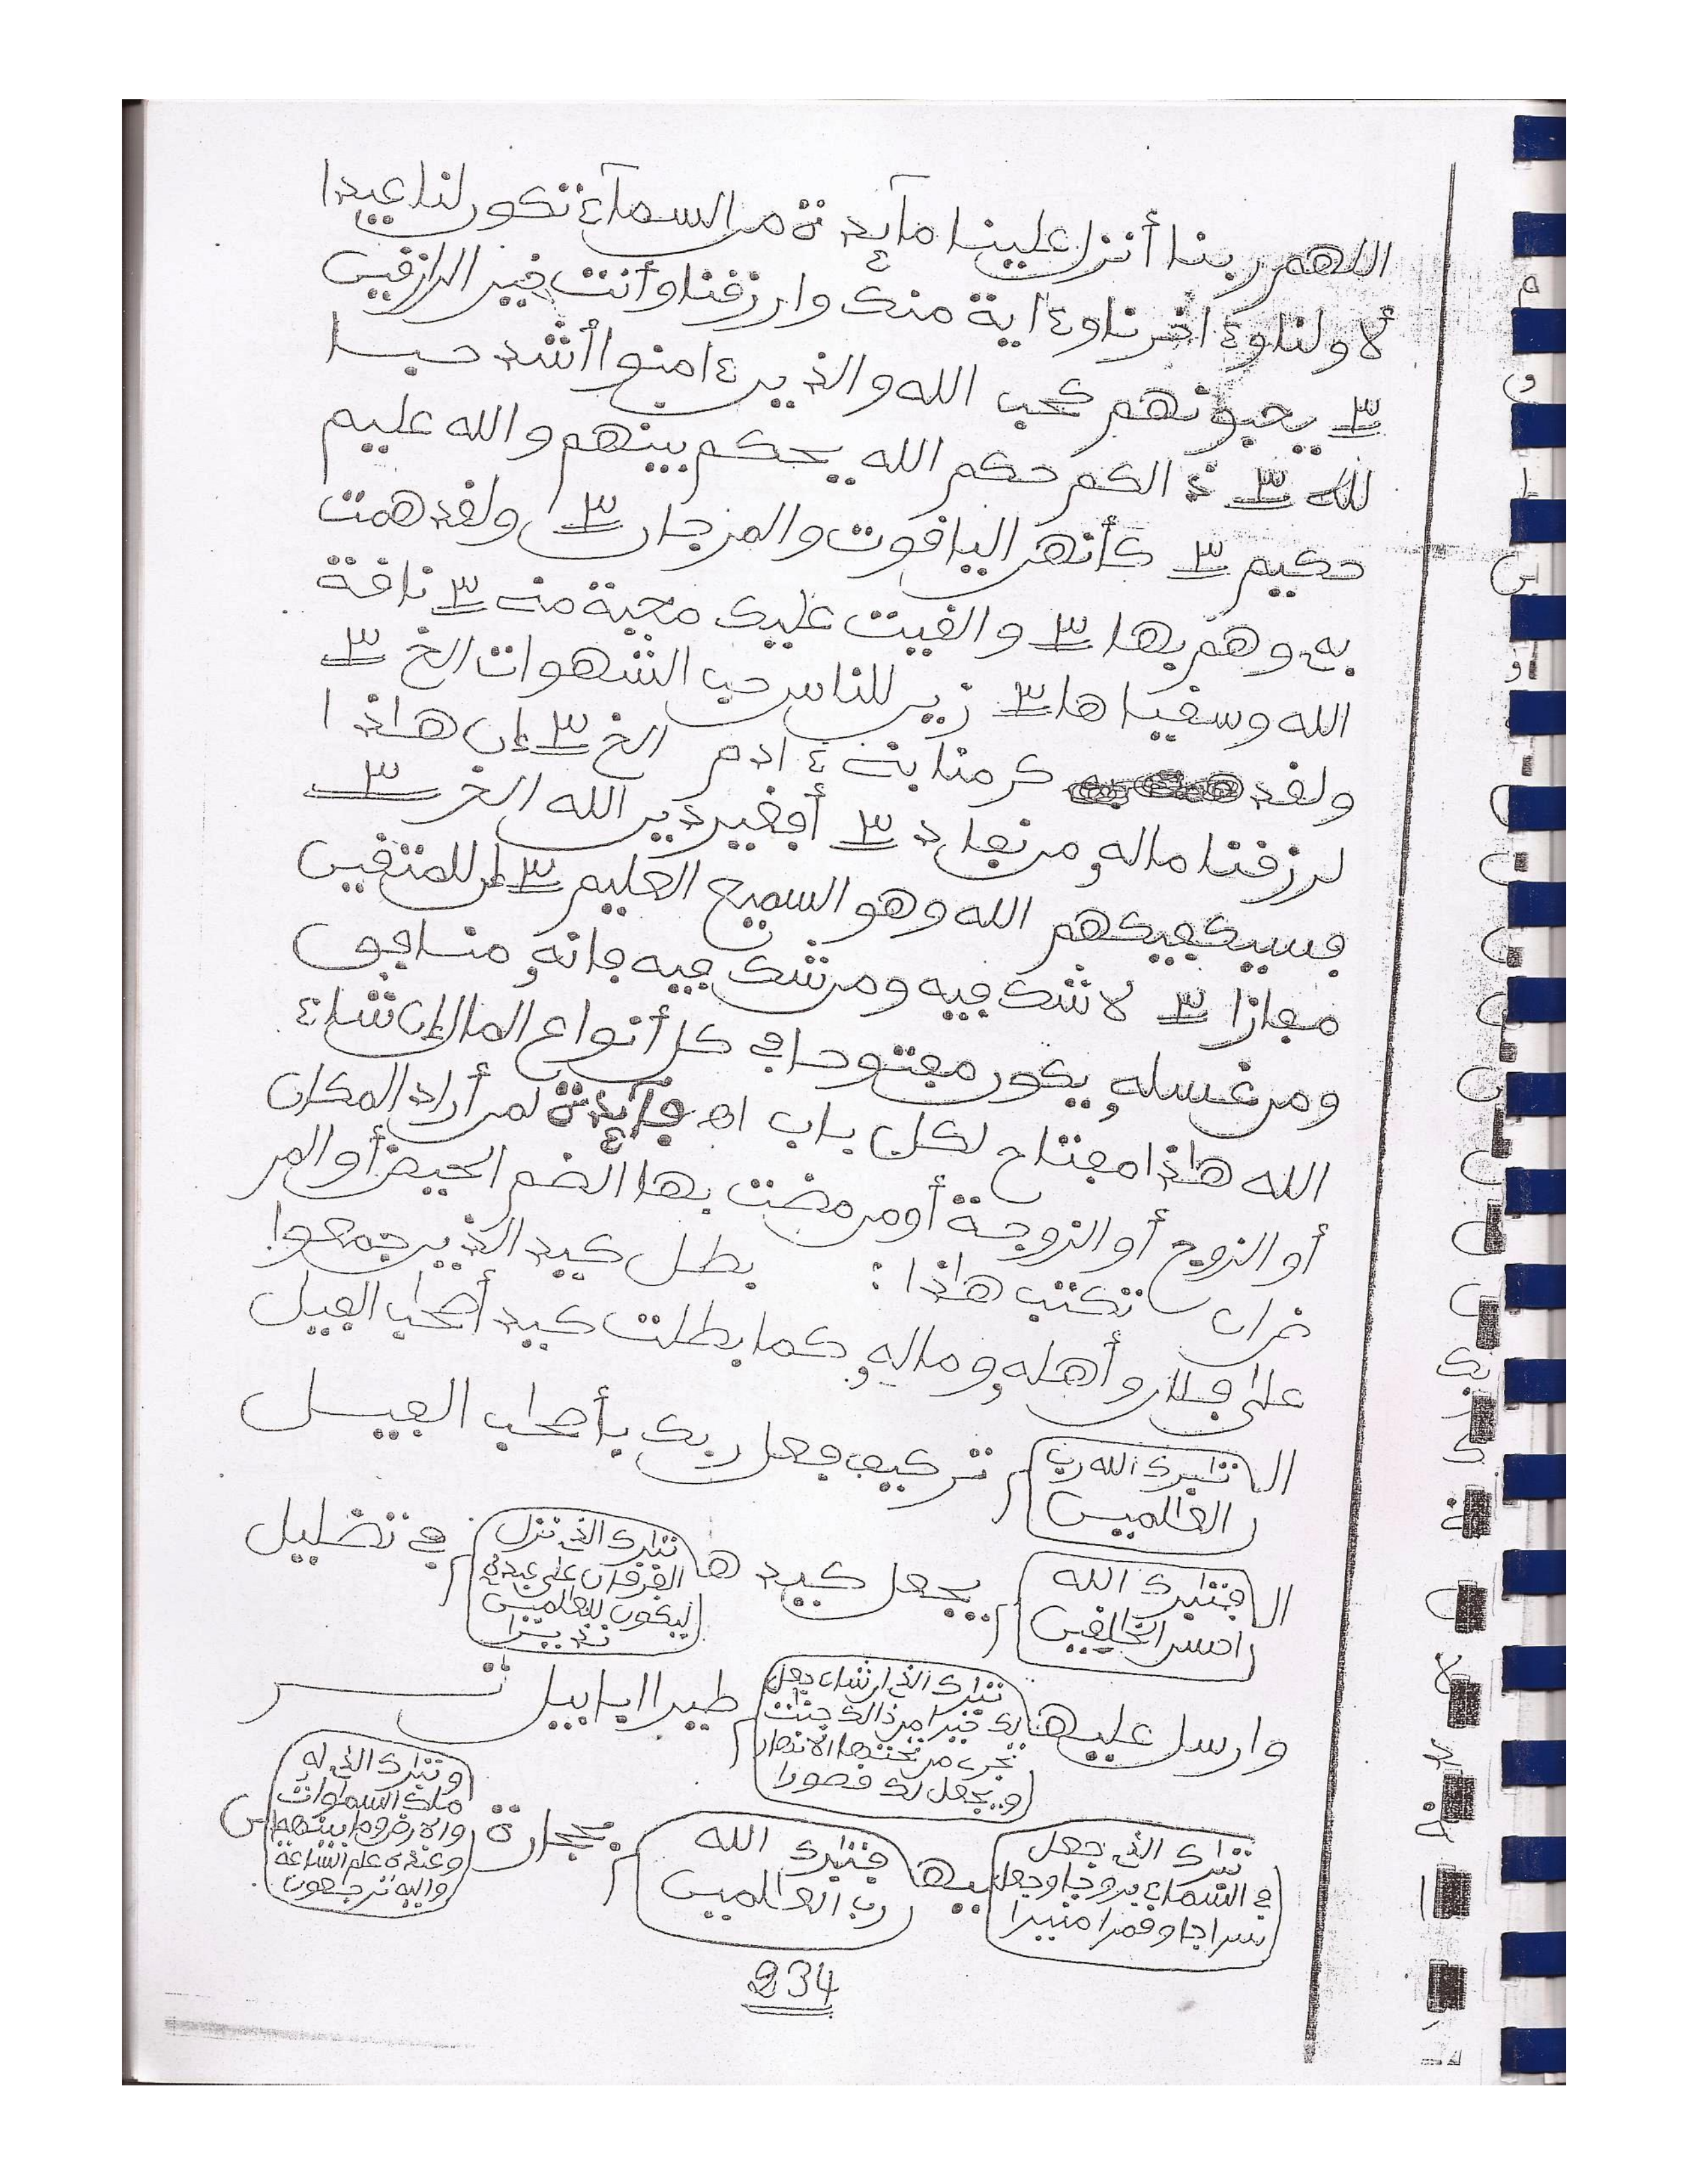 اللهم ربنا أنزل علينا مآئدة من السمآء تكون لنا عيدا
لأولنا وءاخرنا وءاية منك وارزقنا وأنت خير الرازقين
٣ يحبونهم كحب الله والذين ءامنوا أشد حبا
لله ٣ ذالكم حكم الله يحكم بينهم والله عليم
حكيم ٣ كأنهن الياقوت والمرجان ٣ ولقد همت
به وهم بها ٣ والقيت عليك محبة منے ٣ ناقة
الله وسقياها ٣ زين للناس حب الشهوات الخ ٣
ولقد كرمنا بنے ءادم الخ ٣ إن هاذا
لرزقنا ماله من نفاد ٣ أفغير دين الله الخ ٣
فسيكفيكهم الله وهو السميع العليم ٣ إن للمتقين
مفازا ٣ لا شك فيه ومن شك فيه فانه منافق
ومن غسله يكون مفتوحا في كل أنواع المال إن شاء
الله هاذا مفتاح لكل باب اه فآئدة لمن أراد المكان
أو الزوج أو الزوجة أو من مضت بها الضم الحيض أو المر
ضان تكتب هاذا : بطل كيد الذين جمعوا
على فلان وأهله وماله كما بطلت كيد أصحاب الفيل
الـ تبارك الله رب العالمين م تر كيف فعل ربك بأصحاب الفيل
الـ فتبارك الله احسن الخالقين م يجعل كيد هـ تبارك الذي نزل الفرقان على عبده ليكون للعالمين نذيرا م في تضليل
وارسل عليهـ تبارك الذي إن شاء جعل لك خيرا من ذالك جنت تجري من تحتها الانهار ويجعل لك قصورا م طيرا ابابيل تر
تبارك الذي جعل في السماء بروجا وجعل سراجا وقمرا منيرا ميهـ فتبارك الله رب العالمين م بحجارة وتبارك الذي له ملك السماوات والارض وما بينهما وعنده علم الساعة واليه ترجعون س
234